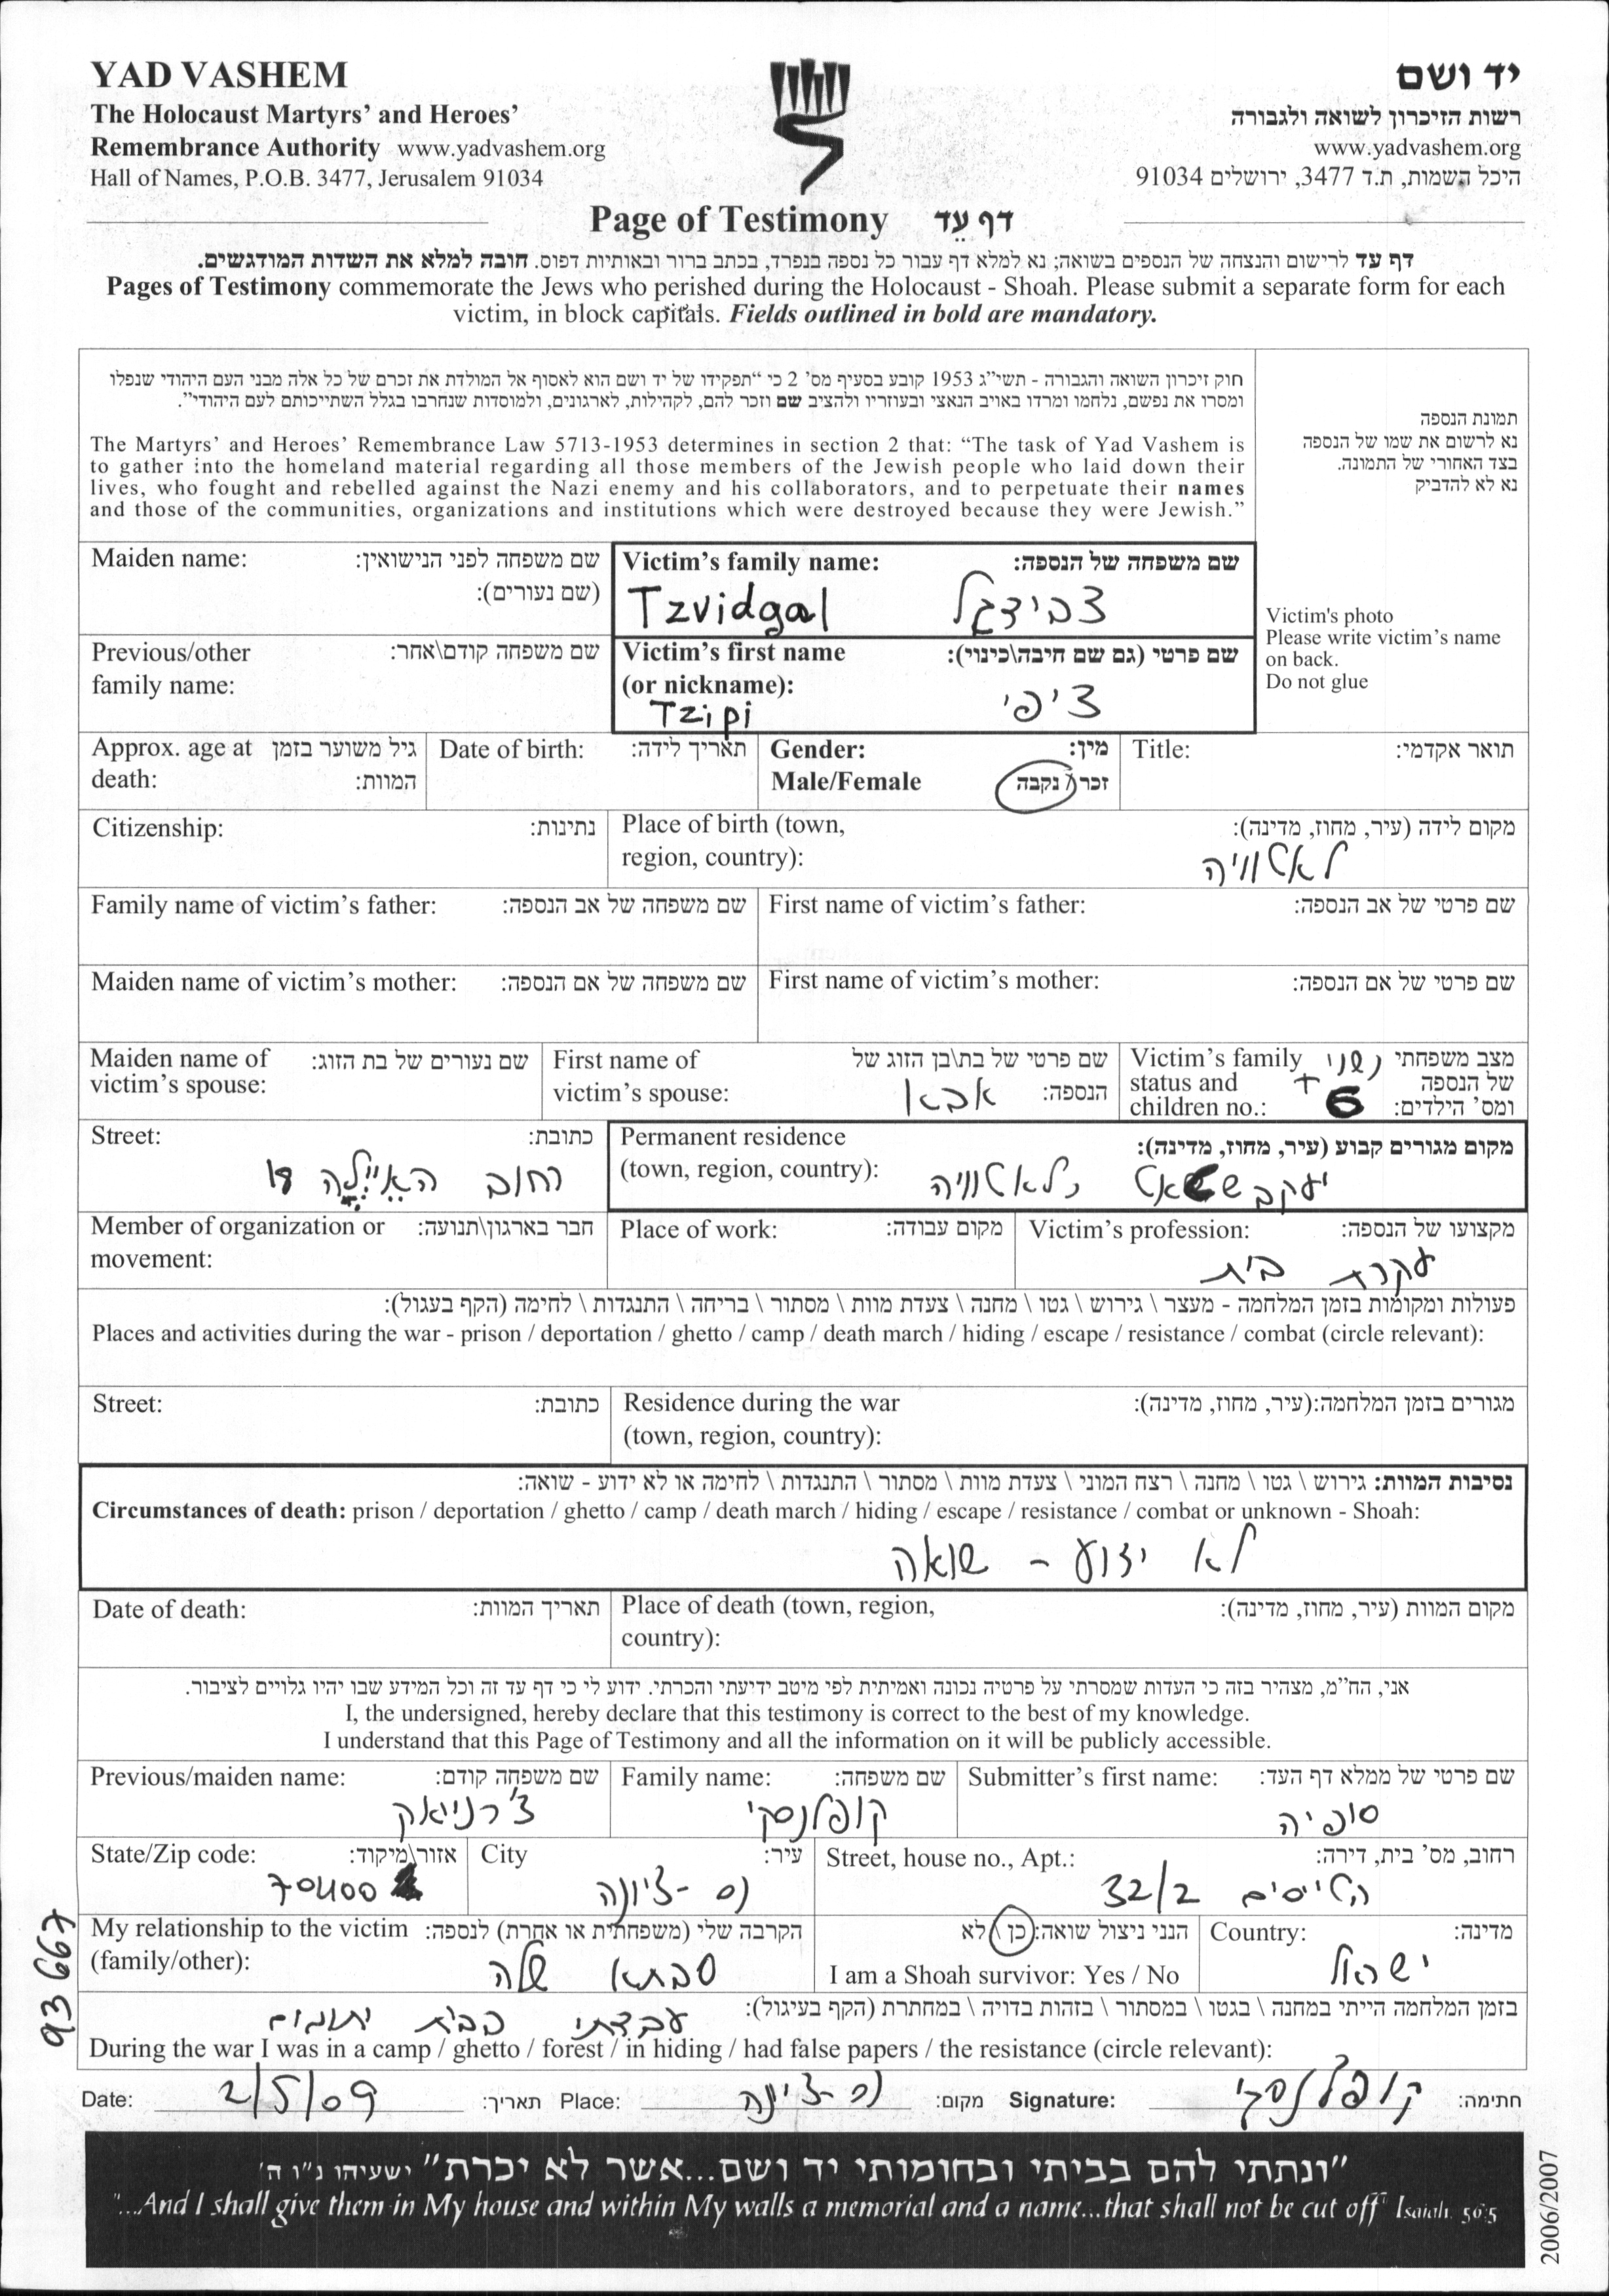 YAD VASHEM
The Holocaust Martyrs' and Heroes'
Remembrance Authority www.yadvashem.org
Hall of Names, P.O.B. 3477, Jerusalem 91034
יד ושם
רשות הזיכרון לשואה ולגבורה
www.yadvashem.org
היכל השמות, ת.ד 3477, ירושלים 91034
Page of Testimony דף עֵד
דף עד לרישום והנצחה של הנספים בשואה; נא למלא דף עבור כל נספה בנפרד, בכתב ברור ובאותיות דפוס. חובה למלא את השדות המודגשים.
Pages of Testimony commemorate the Jews who perished during the Holocaust - Shoah. Please submit a separate form for each
victim, in block capitals. Fields outlined in bold are mandatory.
חוק זיכרון השואה והגבורה - תשי"ג 1953 קובע בסעיף מס' 2 כי "תפקידו של יד ושם הוא לאסוף אל המולדת את זכרם של כל אלה מבני העם היהודי שנפלו
ומסרו את נפשם, נלחמו ומרדו באויב הנאצי ובעוזריו ולהציב שם וזכר להם, לקהילות, לארגונים, ולמוסדות שנחרבו בגלל השתייכותם לעם היהודי".
The Martyrs' and Heroes' Remembrance Law 5713-1953 determines in section 2 that: "The task of Yad Vashem is
to gather into the homeland material regarding all those members of the Jewish people who laid down their
lives, who fought and rebelled against the Nazi enemy and his collaborators, and to perpetuate their names
and those of the communities, organizations and institutions which were destroyed because they were Jewish."
תמונת הנספה
נא לרשום את שמו של הנספה
בצד האחורי של התמונה.
נא לא להדביק
Victim's photo
Please write victim's name
on back.
Do not glue
Maiden name: שם משפחה לפני הנישואין:
(שם נעורים):
Victim's family name: שם משפחה של הנספה:
Tzvidgal צבידגל
Previous/other שם משפחה קודם\אחר:
family name:
Victim's first name שם פרטי (גם שם חיבה\כינוי):
(or nickname):
Tzipi ציפי
Approx. age at גיל משוער בזמן
death: המוות:
Date of birth: תאריך לידה:
Gender: מין:
Male/Female זכר / נקבה
Title: תואר אקדמי:
Citizenship: נתינות:
Place of birth (town, מקום לידה (עיר, מחוז, מדינה):
region, country): לאטוויה
Family name of victim's father: שם משפחה של אב הנספה:
First name of victim's father: שם פרטי של אב הנספה:
Maiden name of victim's mother: שם משפחה של אם הנספה:
First name of victim's mother: שם פרטי של אם הנספה:
Maiden name of שם נעורים של בת הזוג:
victim's spouse:
First name of שם פרטי של בת\בן הזוג של
victim's spouse: הנספה: אבא
Victim's family מצב משפחתי נשוי
status and של הנספה +
children no.: ומס' הילדים: 6
Street: כתובת:
רחוב האַיָילָה 18
Permanent residence מקום מגורים קבוע (עיר, מחוז, מדינה):
(town, region, country): יעקבשטאט, לאטוויה
Member of organization or חבר בארגון\תנועה:
movement:
Place of work: מקום עבודה:
Victim's profession: מקצועו של הנספה:
עקרת בית
פעולות ומקומות בזמן המלחמה - מעצר \ גירוש \ גטו \ מחנה \ צעדת מוות \ מסתור \ בריחה \ התנגדות \ לחימה (הקף בעגול):
Places and activities during the war - prison / deportation / ghetto / camp / death march / hiding / escape / resistance / combat (circle relevant):
Street: כתובת:
Residence during the war מגורים בזמן המלחמה:(עיר, מחוז, מדינה):
(town, region, country):
נסיבות המוות: גירוש \ גטו \ מחנה \ רצח המוני \ צעדת מוות \ מסתור \ התנגדות \ לחימה או לא ידוע - שואה:
Circumstances of death: prison / deportation / ghetto / camp / death march / hiding / escape / resistance / combat or unknown - Shoah:
לא ידוע - שואה
Date of death: תאריך המוות:
Place of death (town, region, מקום המוות (עיר, מחוז, מדינה):
country):
אני, הח"מ, מצהיר בזה כי העדות שמסרתי על פרטיה נכונה ואמיתית לפי מיטב ידיעתי והכרתי. ידוע לי כי דף עד זה וכל המידע שבו יהיו גלויים לציבור.
I, the undersigned, hereby declare that this testimony is correct to the best of my knowledge.
I understand that this Page of Testimony and all the information on it will be publicly accessible.
Previous/maiden name: שם משפחה קודם:
צ'רניאק
Family name: שם משפחה:
קופלנסקי
Submitter's first name: שם פרטי של ממלא דף העד:
סופיה
State/Zip code: אזור\מיקוד:
70400
City עיר:
נס-ציונה
Street, house no., Apt.: רחוב, מס' בית, דירה:
הטייסים 32/2
My relationship to the victim הקרבה שלי (משפחתית או אחרת) לנספה:
(family/other): סבתא שלה
הנני ניצול שואה: כן \ לא
I am a Shoah survivor: Yes / No
Country: מדינה:
ישראל
בזמן המלחמה הייתי במחנה \ בגטו \ במסתור \ בזהות בדויה \ במחתרת (הקף בעיגול):
עבדתי בבית יתומים
During the war I was in a camp / ghetto / forest / in hiding / had false papers / the resistance (circle relevant):
Date: 2/5/09 תאריך: Place: נס-ציונה מקום: Signature: קופלנסקי חתימה:
"ונתתי להם בביתי ובחומותי יד ושם...אשר לא יכרת" ישעיהו נ"ו ה'
"...And I shall give them in My house and within My walls a memorial and a name...that shall not be cut off" Isaiah 56:5
93 667
2006/2007